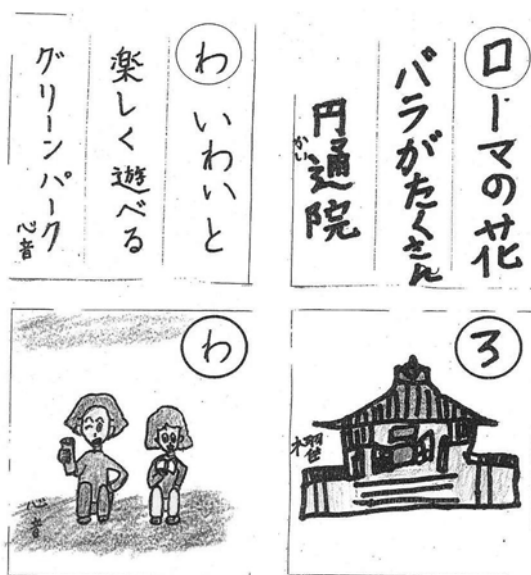 ローマの花
バラがたくさん
円通院
かい
わいわいと
楽しく遊べる
グリーンパーク
心音
ろ
わ
心音